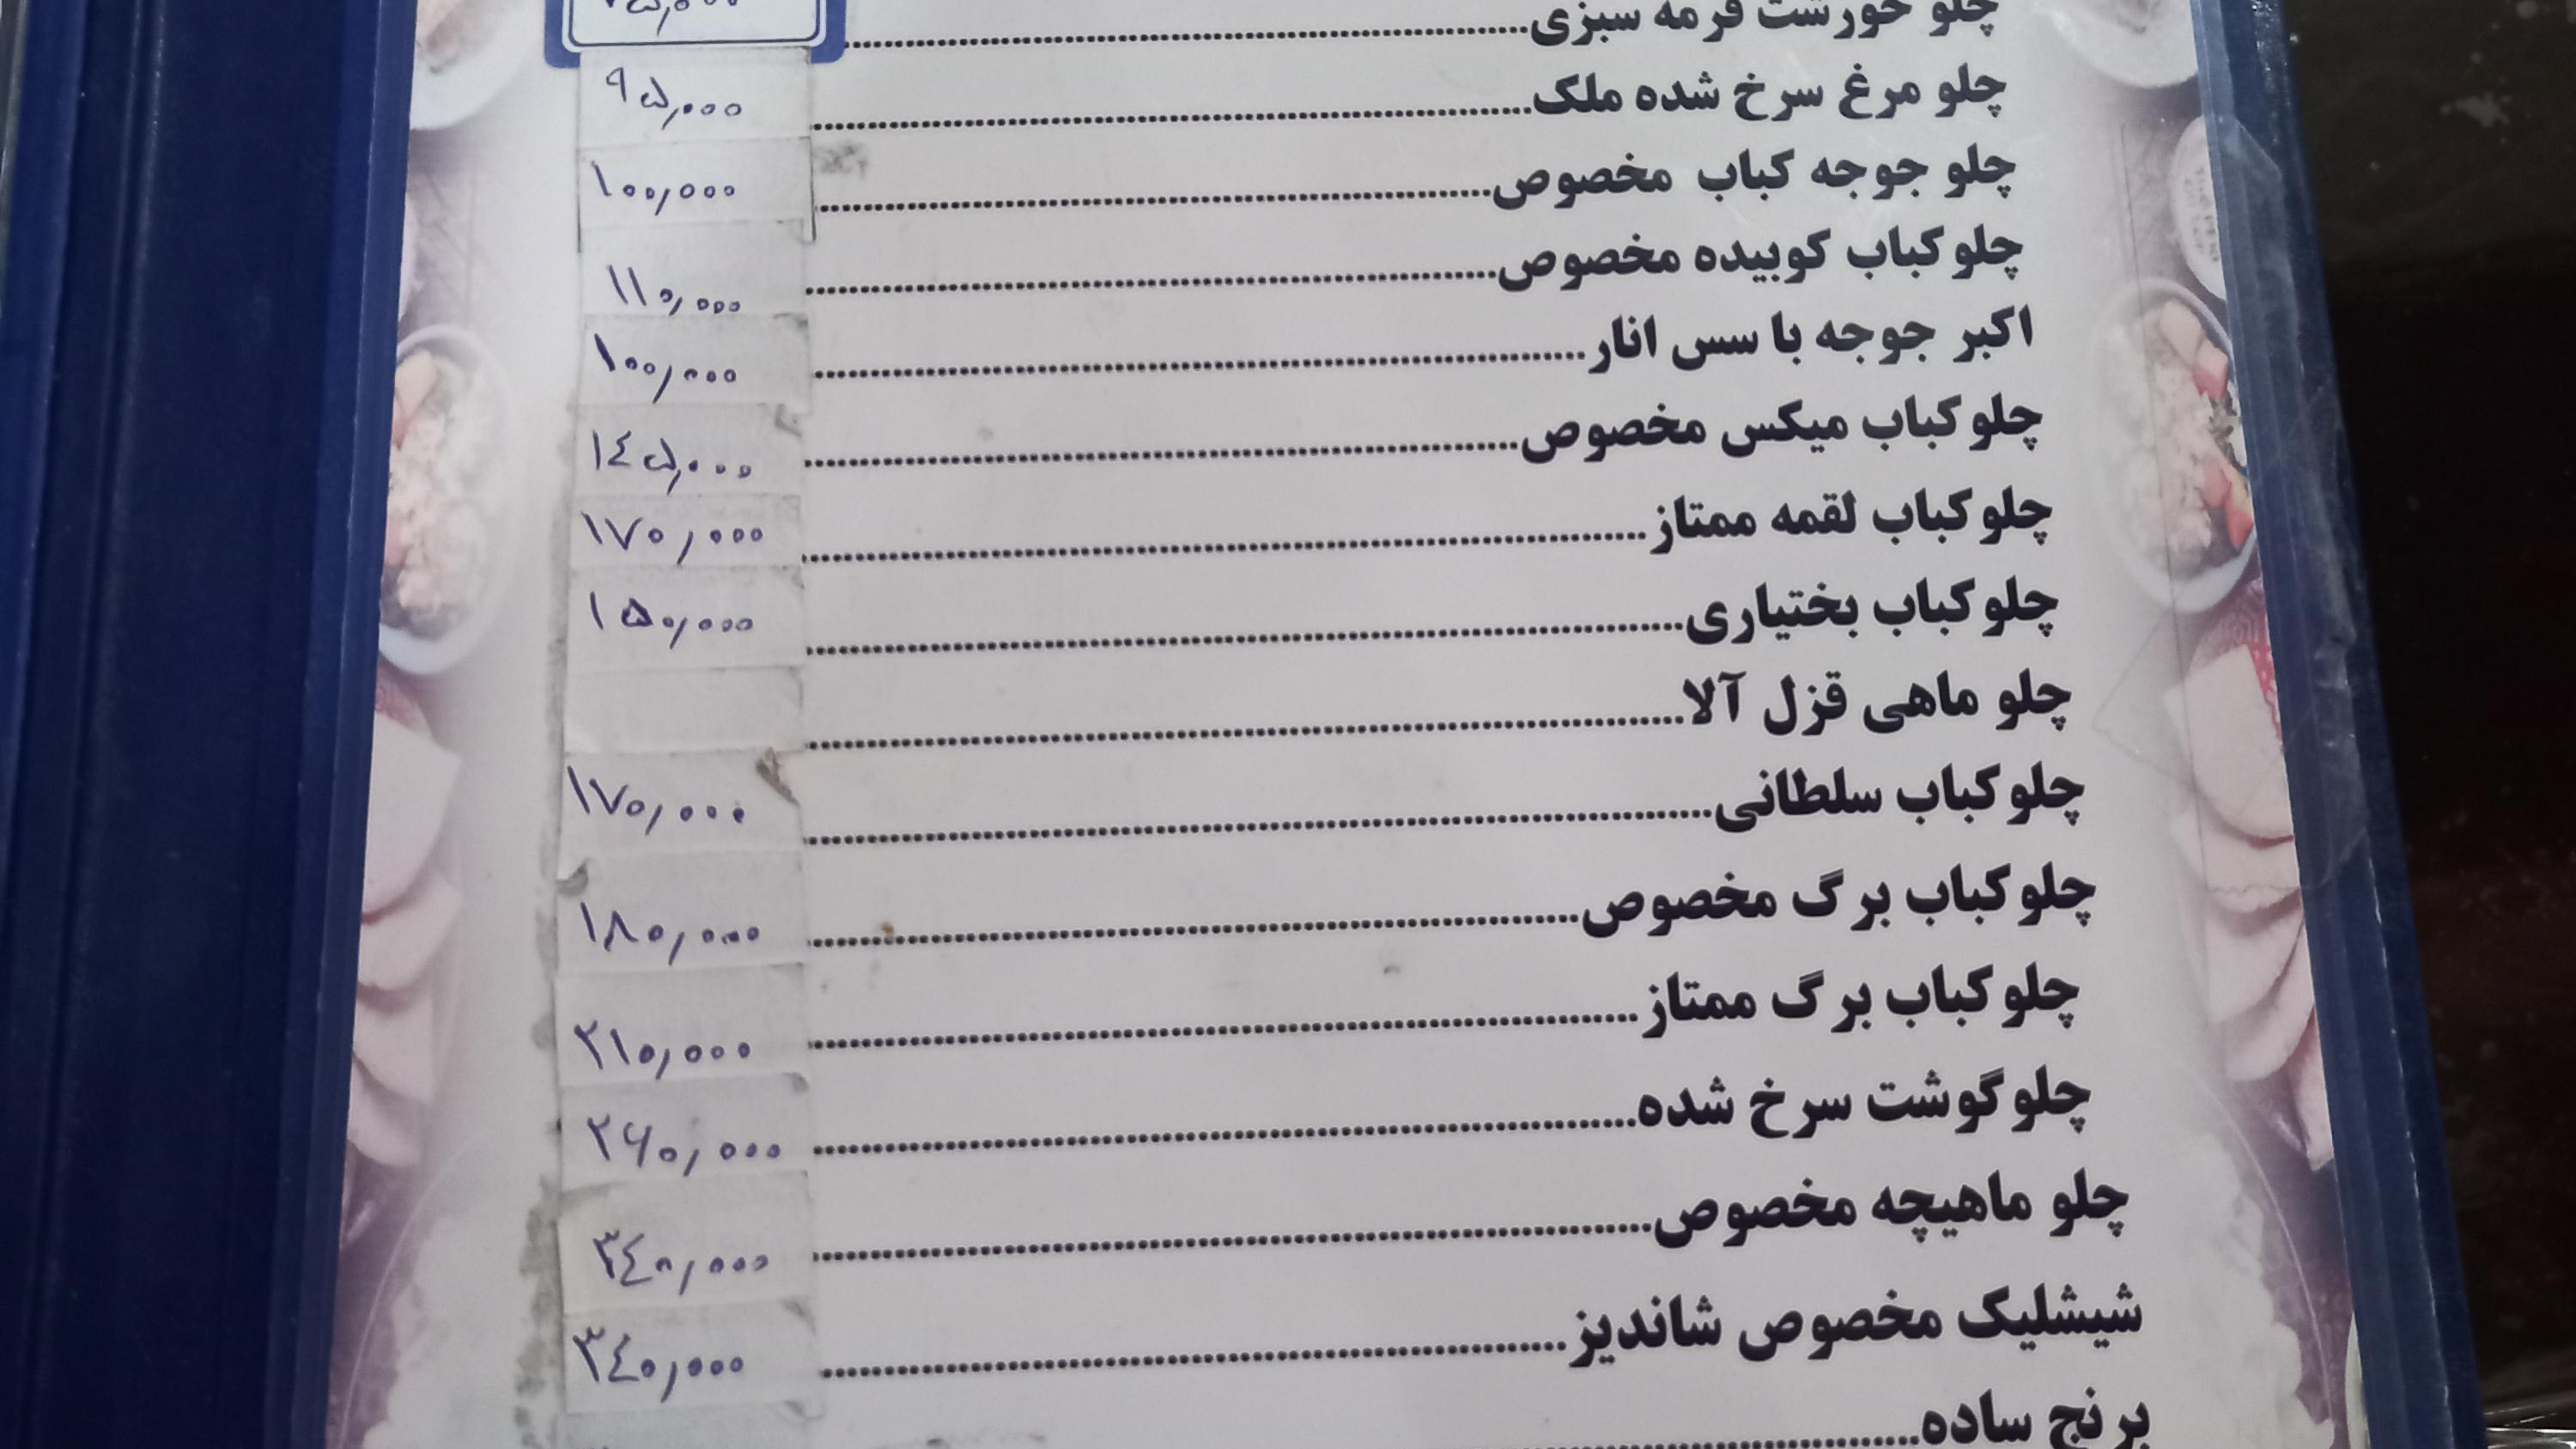 چلو خورشت قرمه سبزی
چلو مرغ سرخ شده ملک ۹۵,۰۰۰
چلو جوجه کباب مخصوص ۱۰۰,۰۰۰
چلو کباب کوبیده مخصوص ۱۱۰,۰۰۰
اکبر جوجه با سس انار ۱۰۰,۰۰۰
چلو کباب میکس مخصوص ۱۴۵,۰۰۰
چلو کباب لقمه ممتاز ۱۷۰,۰۰۰
چلو کباب بختیاری ۱۵۰,۰۰۰
چلو ماهی قزل آلا
چلو کباب سلطانی ۱۷۰,۰۰۰
چلو کباب برگ مخصوص ۱۸۰,۰۰۰
چلو کباب برگ ممتاز ۲۱۰,۰۰۰
چلو گوشت سرخ شده ۲۶۰,۰۰۰
چلو ماهیچه مخصوص ۳۴۰,۰۰۰
شیشلیک مخصوص شاندیز ۳۴۰,۰۰۰
برنج ساده